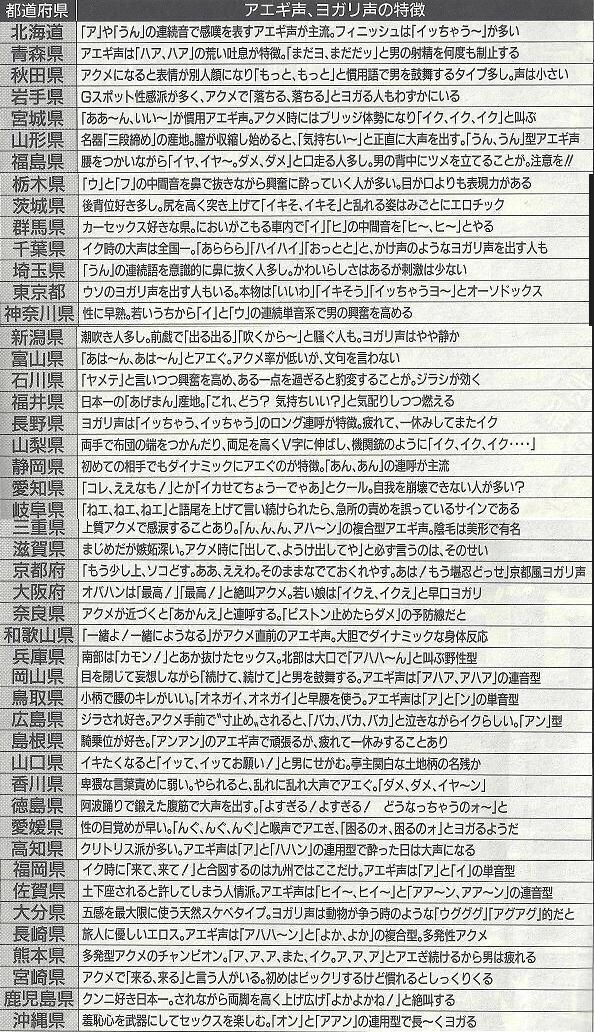 都道府県 アエギ声、ヨガリ声の特徴
北海道 「ア」や「うん」の連続音で感嘆を表すアエギ声が主流。フィニッシュは「イッちゃう〜」が多い
青森県 アエギ声は「ハア、ハア」の荒い吐息が特徴。「まだヨ、まだだッ」と男の射精を何度も制止する
秋田県 アクメになると表情が別人顔になり「もっと、もっと」と慣用語で男を鼓舞するタイプ多し。声は小さい
岩手県 Gスポット性感派が多く、アクメで「落ちる、落ちる」とヨガる人もわずかにいる
宮城県 「ああ〜ん、いい〜」が慣用アエギ声。アクメ時にはブリッジ体勢になり「イク、イク、イク」と叫ぶ
山形県 名器「三段締め」の産地。膣が収縮し始めると、「気持ちい〜」と正直に大声を出す。「うん、うん」型アエギ声
福島県 腰をつかいながら「イヤ、イヤ〜。ダメ、ダメ」と口走る人多し。男の背中にツメを立てることが。注意を!!
栃木県 「ウ」と「フ」の中間音を鼻で抜きながら興奮に酔っていく人が多い。目が口よりも表現力がある
茨城県 後背位好き多し。尻を高く突き上げて「イキそ、イキそ」と乱れる姿はみごとにエロチック
群馬県 カーセックス好きな県。においがこもる車内で「イ」「ヒ」の中間音を「ヒ〜、ヒ〜」とやる
千葉県 イク時の大声は全国一。「あららら」「ハイハイ」「おっとと」と、かけ声のようなヨガリ声を出す人も
埼玉県 「うん」の連続語を意識的に鼻に抜く人多し。かわいらしさはあるが刺激は少ない
東京都 ウソのヨガリ声を出す人もいる。本物は「いいわ」「イキそう」「イッちゃうヨ〜」とオーソドックス
神奈川県 性に早熟。若いうちから「イ」と「ウ」の連続単音系で男の興奮を高める
新潟県 潮吹き人多し。前戯で「出る出る」「吹くから〜」と騒ぐ人も。ヨガリ声はやや静か
富山県 「あは〜ん、あは〜ん」とアエぐ。アクメ率が低いが、文句を言わない
石川県 「ヤメテ」と言いつつ興奮を高め、ある一点を過ぎると豹変することが。ジラシが効く
福井県 日本一の「あげまん」産地。「これ、どう? 気持ちいい?」と気配りしつつ燃える
長野県 ヨガリ声は「イッちゃう、イッちゃう」のロング連呼が特徴。疲れて、一休みしてまたイク
山梨県 両手で布団の端をつかんだり、両足を高くV字に伸ばし、機関銃のように「イク、イク、イク・・・・」
静岡県 初めての相手でもダイナミックにアエぐのが特徴。「あん、あん」の連呼が主流
愛知県 「コレ、ええなも!」とか「イカせてちょうーでゃあ」とクール。自我を崩壊できない人が多い?
岐阜県 「ねエ、ねエ、ねエ」と語尾を上げて言い続けられたら、急所の責めを誤っているサインである
三重県 上質アクメで感涙することあり。「ん、ん、ん、アハ〜ン」の複合型アエギ声。陰毛は美形で有名
滋賀県 まじめだが嫉妬深い。アクメ時に「出して、ようけ出してや」と必ず言うのは、そのせい
京都府 「もう少し上、ソコどす。ああ、ええわ。そのままなでておくれやす。あは!もう堪忍どっせ」京都風ヨガリ声
大阪府 オバハンは「最高!」「最高!」と絶叫アクメ。若い娘は「イクえ、イクえ」と早口ヨガリ
奈良県 アクメが近づくと「あかんえ」と連呼する。「ピストン止めたらダメ」の予防線だと
和歌山県 「一緒よ!一緒にようなる」がアクメ直前のアエギ声。大胆でダイナミックな身体反応
兵庫県 南部は「カモン!」とあか抜けたセックス。北部は大口で「アハハ〜ん」と叫ぶ野性型
岡山県 目を閉じて妄想しながら「続けて、続けて」と男を鼓舞する。アエギ声は「アハア、アハア」の連音型
鳥取県 小柄で腰のキレがいい。「オネガイ、オネガイ」と早腰を使う。アエギ声は「ア」と「ン」の単音型
広島県 ジラされ好き。アクメ手前で“寸止め。されると、「バカ、バカ、バカ」と泣きながらイクらしい。「アン」型
島根県 騎乗位が好き。「アンアン」のアエギ声で頑張るが、疲れて一休みすることあり
山口県 イキたくなると「イッて、イッてお願い!」と男にせがむ。亭主関白な土地柄の名残か
香川県 卑猥な言葉責めに弱い。やられると、乱れに乱れ大声でアエぐ。「ダメ、ダメ、イヤ〜ン」
徳島県 阿波踊りで鍛えた腹筋で大声を出す。「よすぎる!よすぎる! どうなっちゃうのォ〜」と
愛媛県 性の目覚めが早い。「んぐ、んぐ、んぐ」と喉声でアエぎ、「困るのォ、困るのォ」とヨガるようだ
高知県 クリトリス派が多い。アエギ声は「ア」と「ハハン」の連用型で酔った日は大声になる
福岡県 イク時に「来て、来て!」と合図するのは九州ではここだけ。アエギ声は「ア」と「イ」の単音型
佐賀県 土下座されると許してしまう人情派。アエギ声は「ヒイ〜、ヒイ〜」と「アア〜ン、アア〜ン」の連音型
大分県 五感を最大限に使う天然スケベタイプ。ヨガリ声は動物が争う時のような「ウグググ」「アグアグ」的だと
長崎県 旅人に優しいエロス。アエギ声は「アハハ〜ン」と「よか、よか」の複合型。多発性アクメ
熊本県 多発型アクメのチャンピオン。「ア、ア、ア、また、イク。ア、ア、ア」とアエぎ続けるから男は疲れる
宮崎県 アクメで「来る、来る」と言う人がいる。初めはビックリするけど慣れるとしっくりくる
鹿児島県 クンニ好き日本一。されながら両脚を高く上げ広げ「よかよかね!」と絶叫する
沖縄県 羞恥心を武器にしてセックスを楽しむ。「オン」と「アアン」の連用型で長〜くヨガる